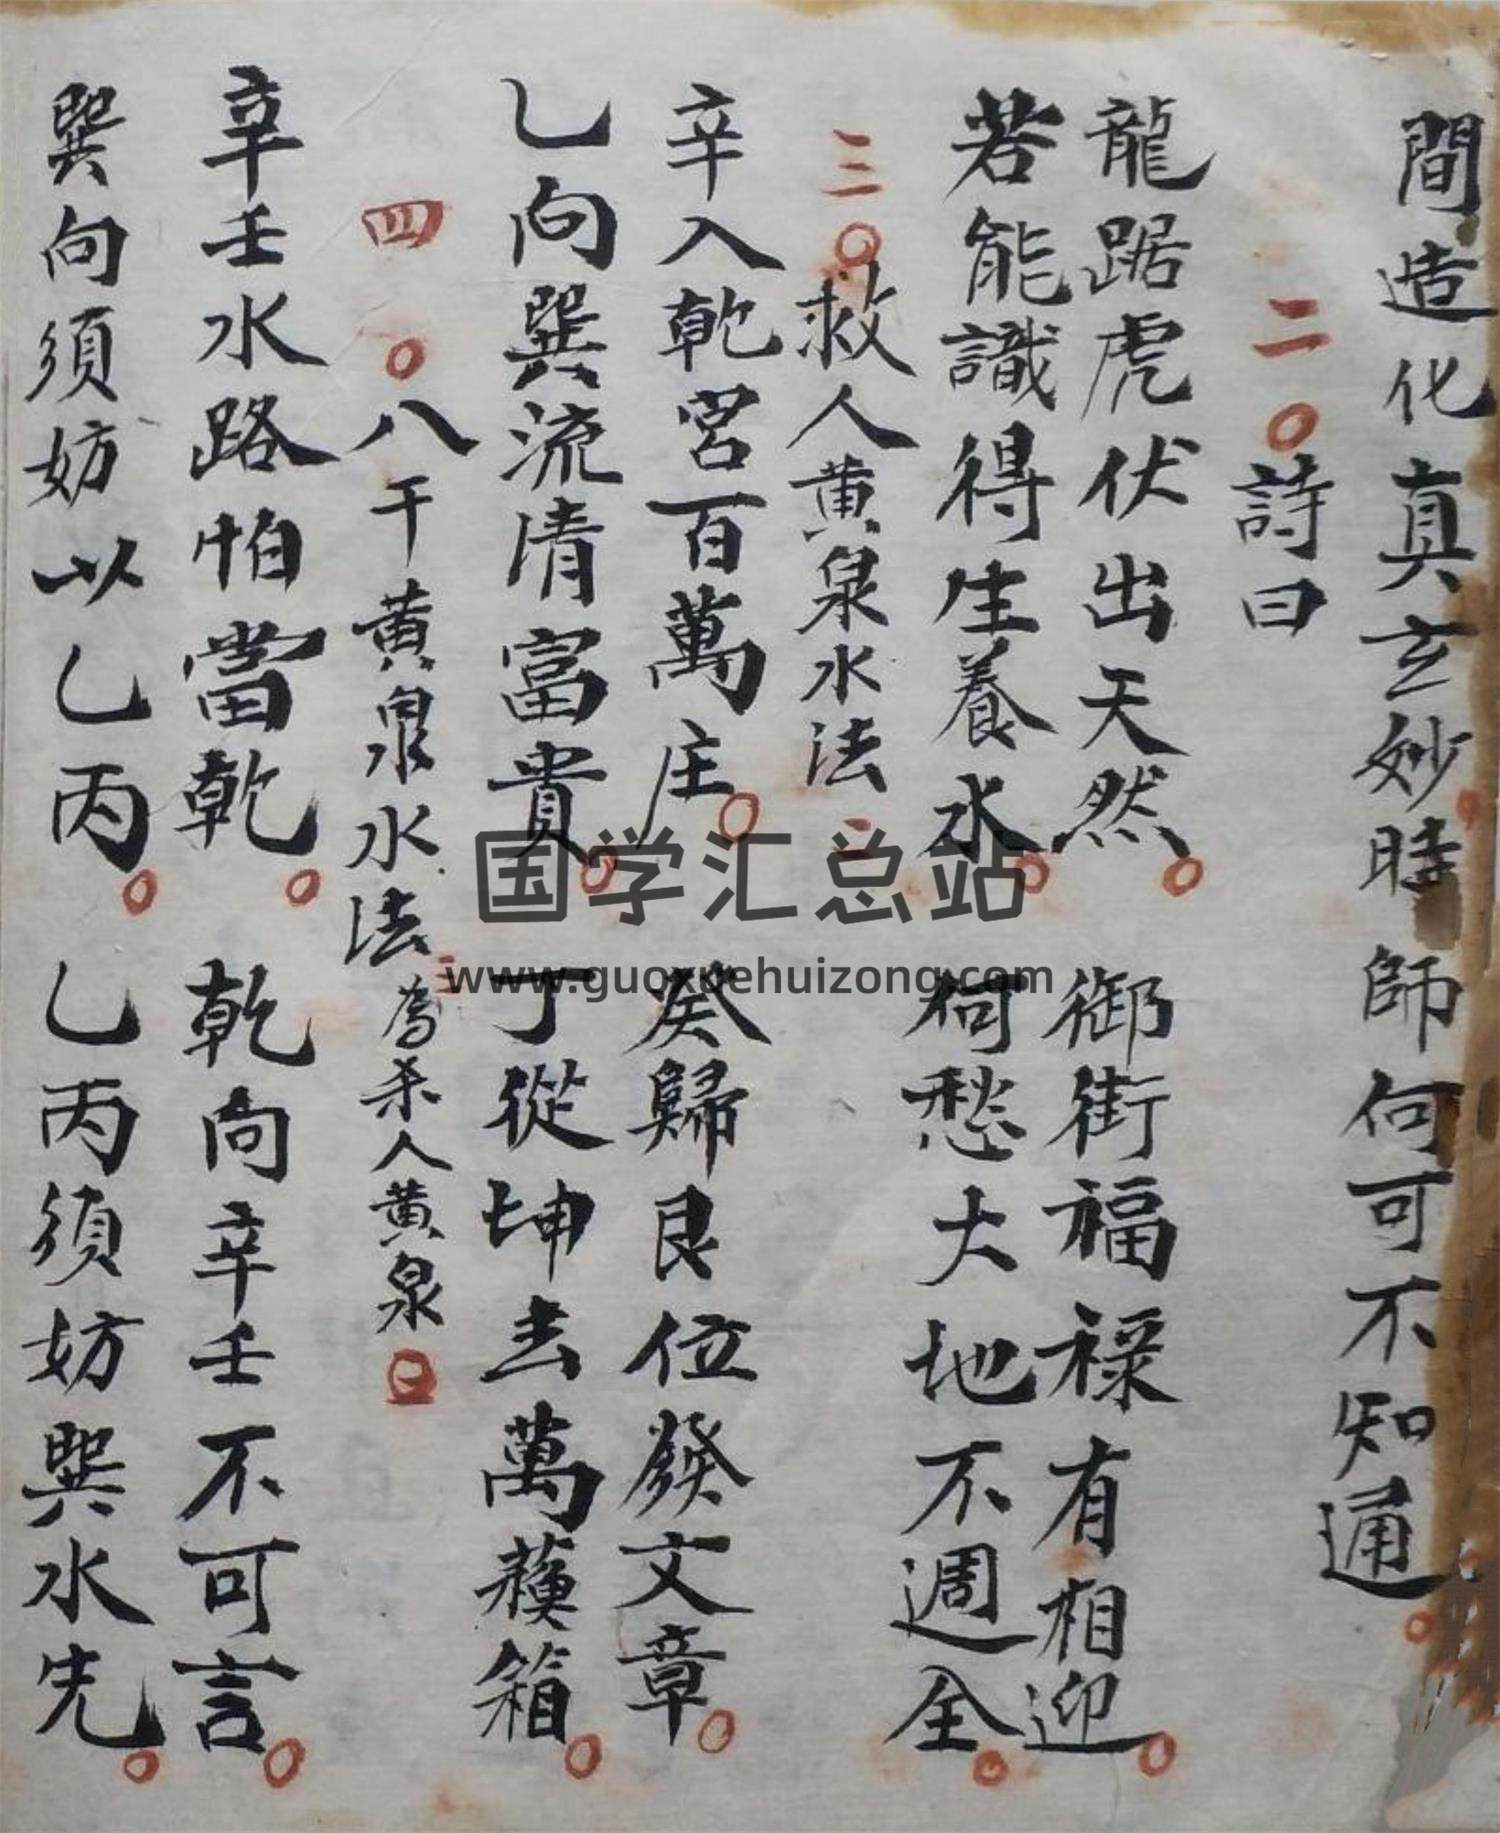 間造化真玄妙時師何可不知通
二〇詩曰
龍踞虎伏出天然 御街福祿有相迎
若能識得生養水 何愁大地不週全
三〇救人黄泉水法二
辛入乾宮百萬庄 癸歸艮位發文章
乙向巽流清富貴 丁從坤去萬箱
四〇八干黄泉水法三為杀人黄泉
辛壬水路怕當乾 乾向辛壬不可言
巽向須妨以乙丙 乙丙須妨巽水先
国学汇总站
www.guoxuehuizong.com